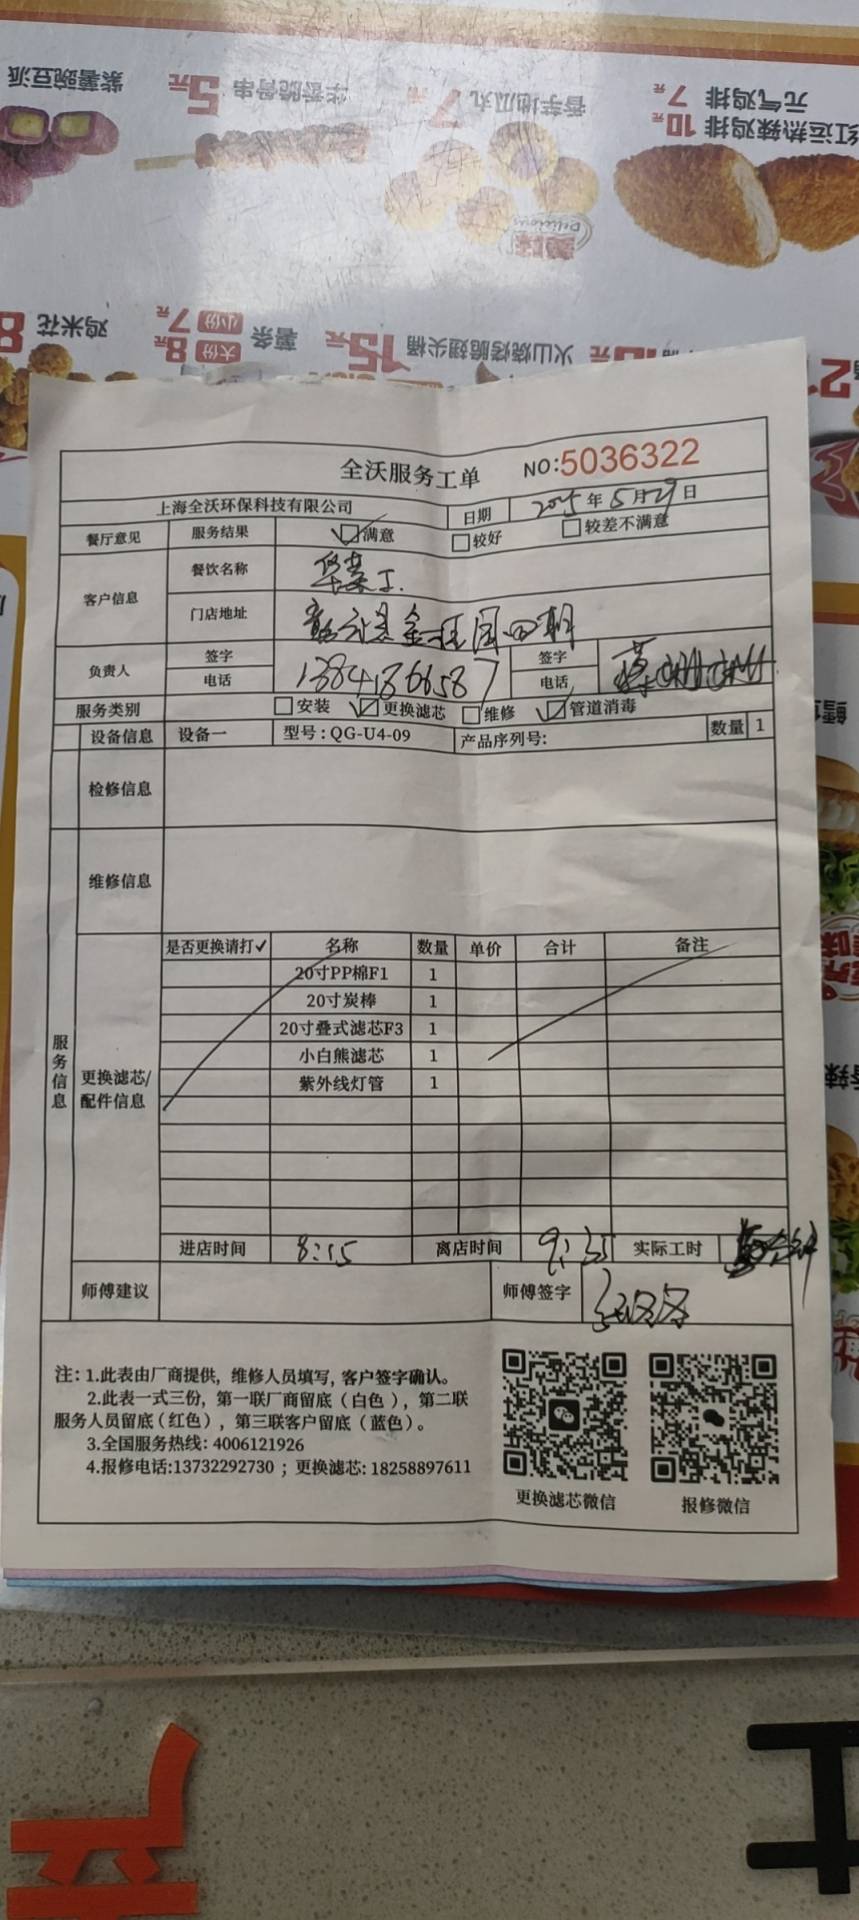 紫薯豌豆派
华香脆骨串 5元
香芋地瓜丸 7元
元气鸡排 7元
红运热辣鸡排 10元
美味
Delicious
鸡米花 8
薯条 大份 8元 小份 7元
火山烧烤脆翅尖桶 15元
全沃服务工单 NO:5036322
上海全沃环保科技有限公司 日期 2025年5月29日
餐厅意见 服务结果 满意 较好 较差不满意
客户信息 餐饮名称 华莱士.
门店地址 县金桂园四期
负责人 签字 签字
电话 13841866587 电话
服务类别 安装 更换滤芯 维修 管道消毒
设备信息 设备一 型号:QG-U4-09 产品序列号: 数量 1
检修信息
维修信息
服务信息
更换滤芯/配件信息
是否更换请打✓ 名称 数量 单价 合计 备注
20寸PP棉F1 1
20寸炭棒 1
20寸叠式滤芯F3 1
小白熊滤芯 1
紫外线灯管 1
进店时间 8:15 离店时间 9:35 实际工时
师傅建议 师傅签字
注:1.此表由厂商提供,维修人员填写,客户签字确认。
2.此表一式三份,第一联厂商留底(白色),第二联
服务人员留底(红色),第三联客户留底(蓝色)。
3.全国服务热线:4006121926
4.报修电话:13732292730;更换滤芯:18258897611
更换滤芯微信 报修微信